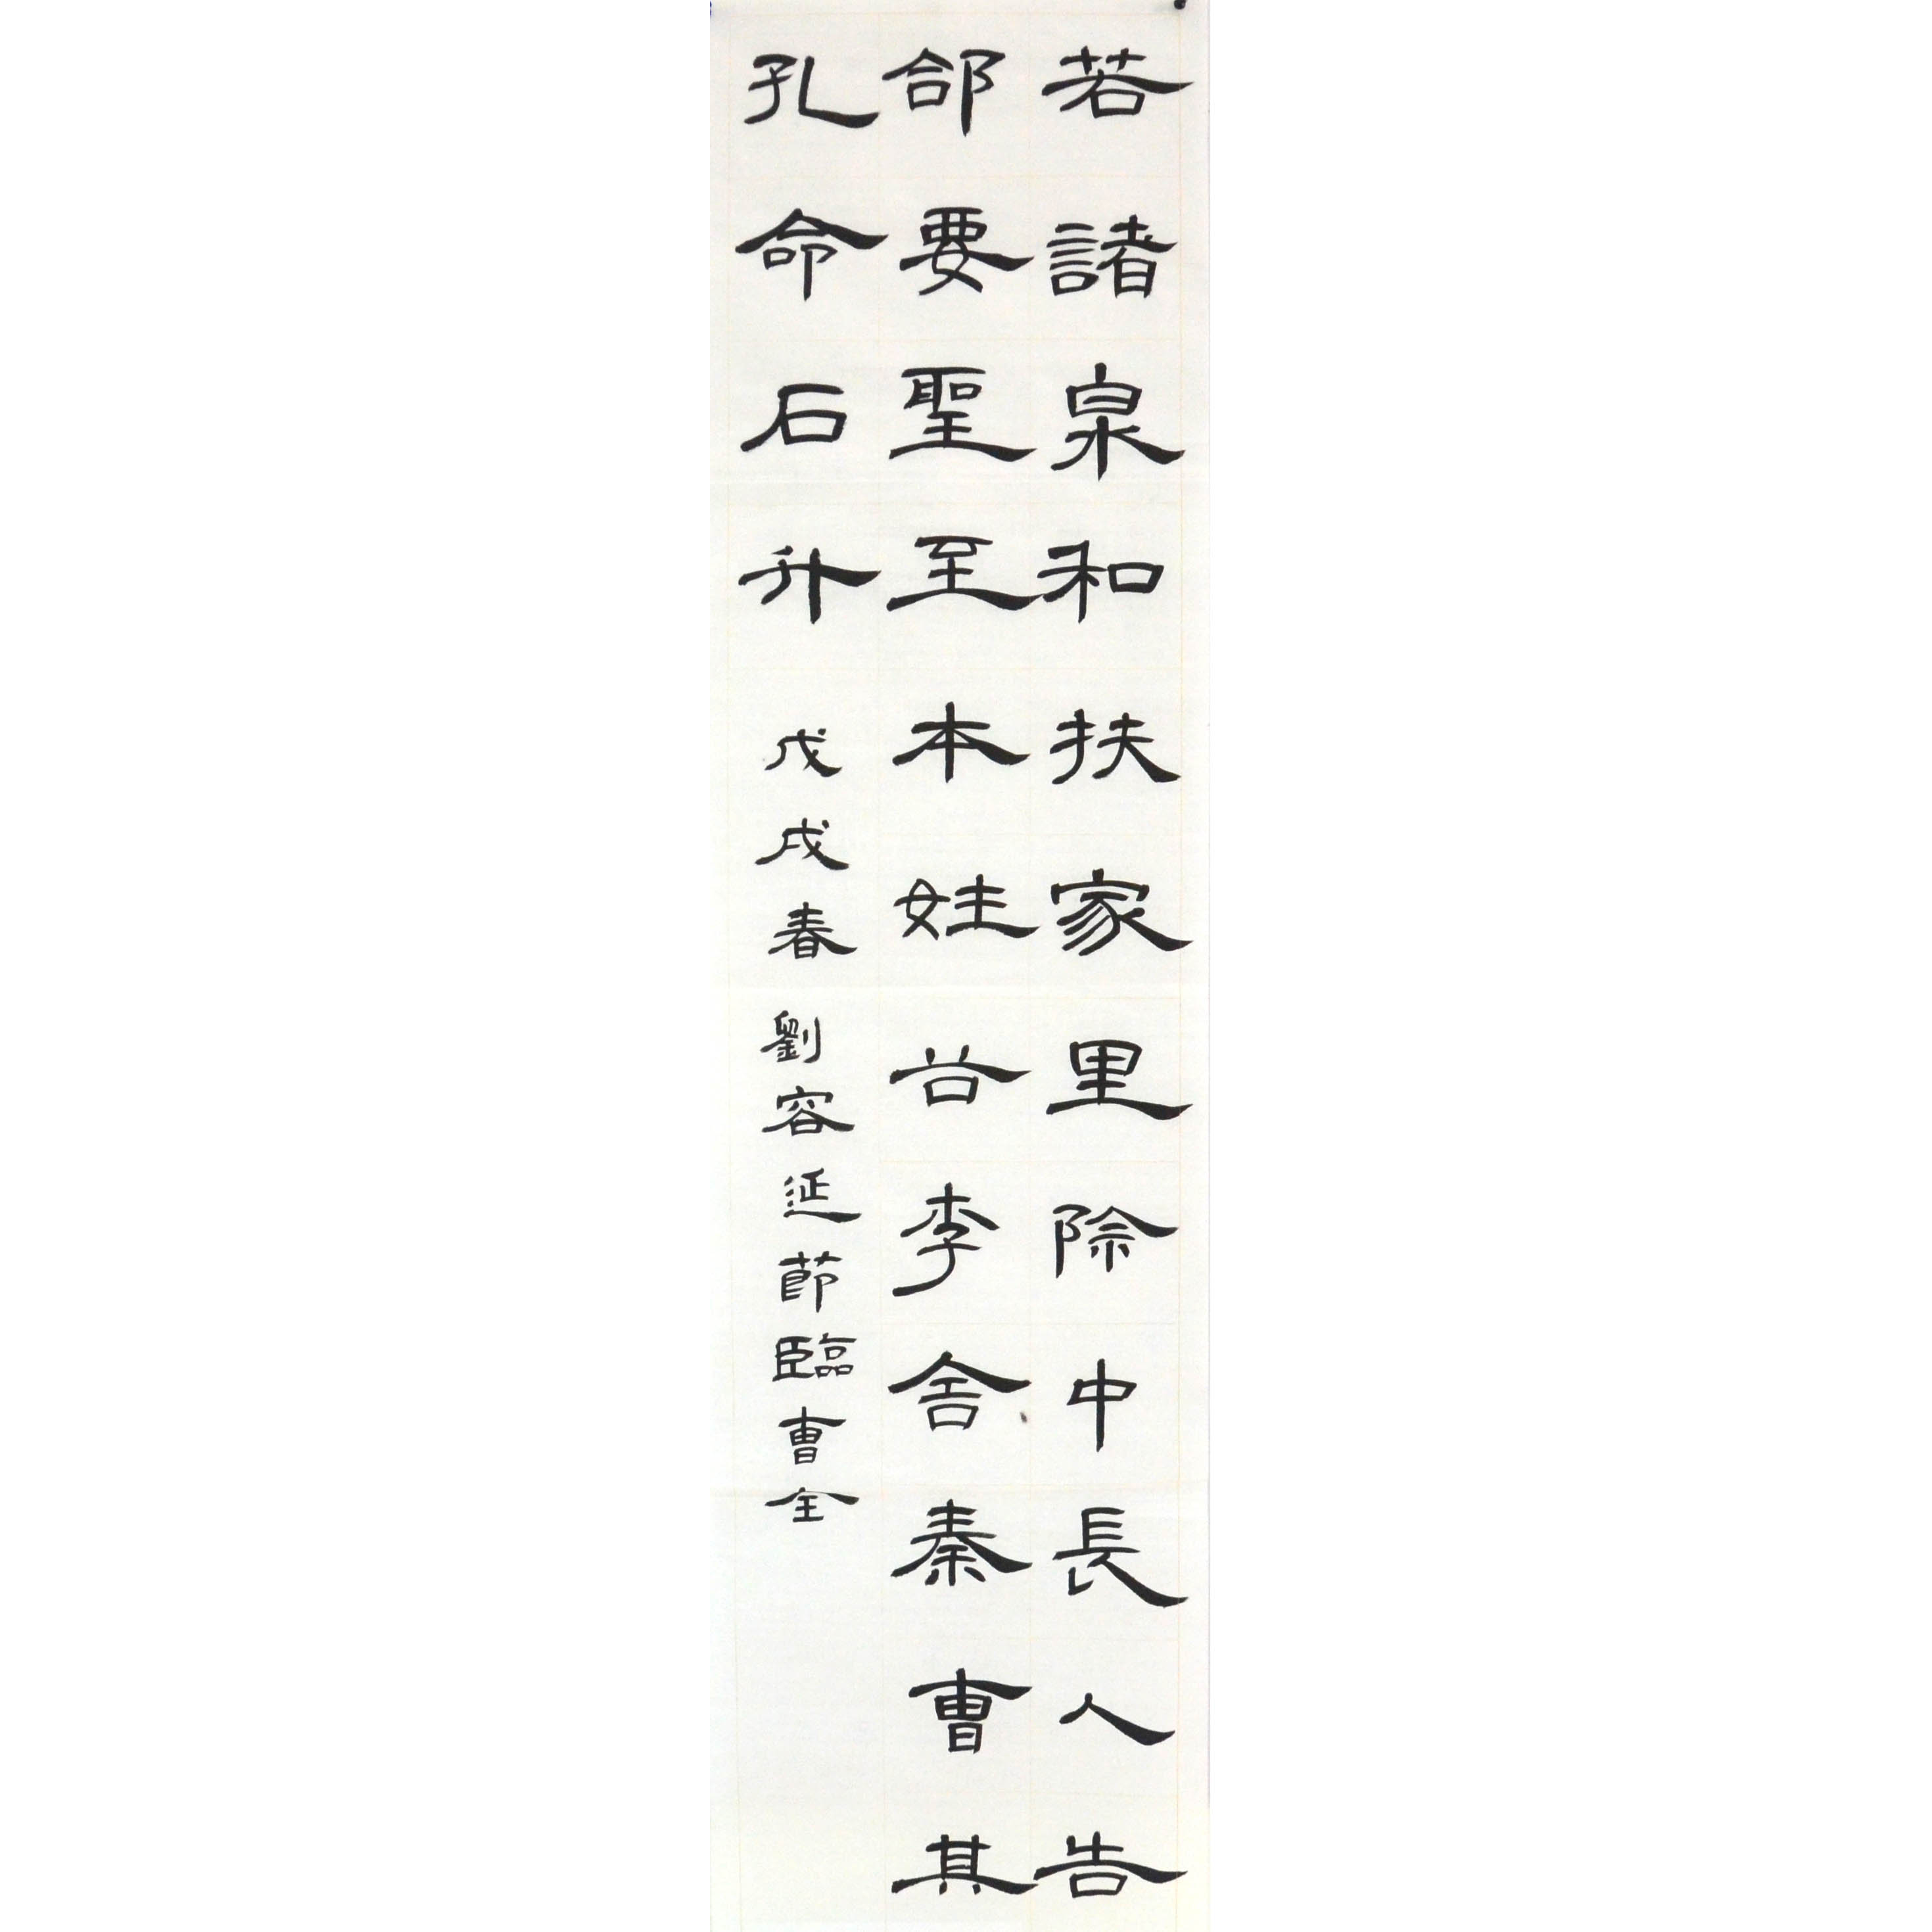 若諸泉和扶家里除中長人告
郃要聖至本姓谷李舍秦曹其
孔命石升 戊戌春 劉容延節臨曹全